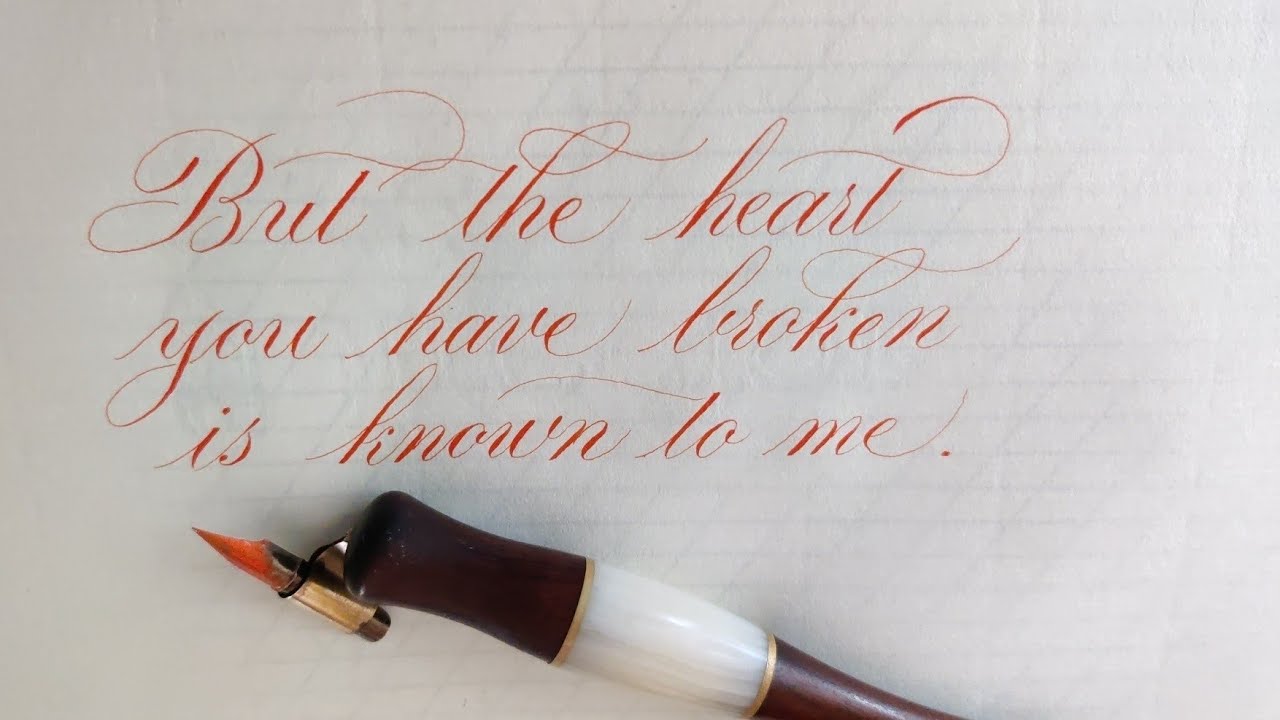 But the heart
you have broken
is known to me.